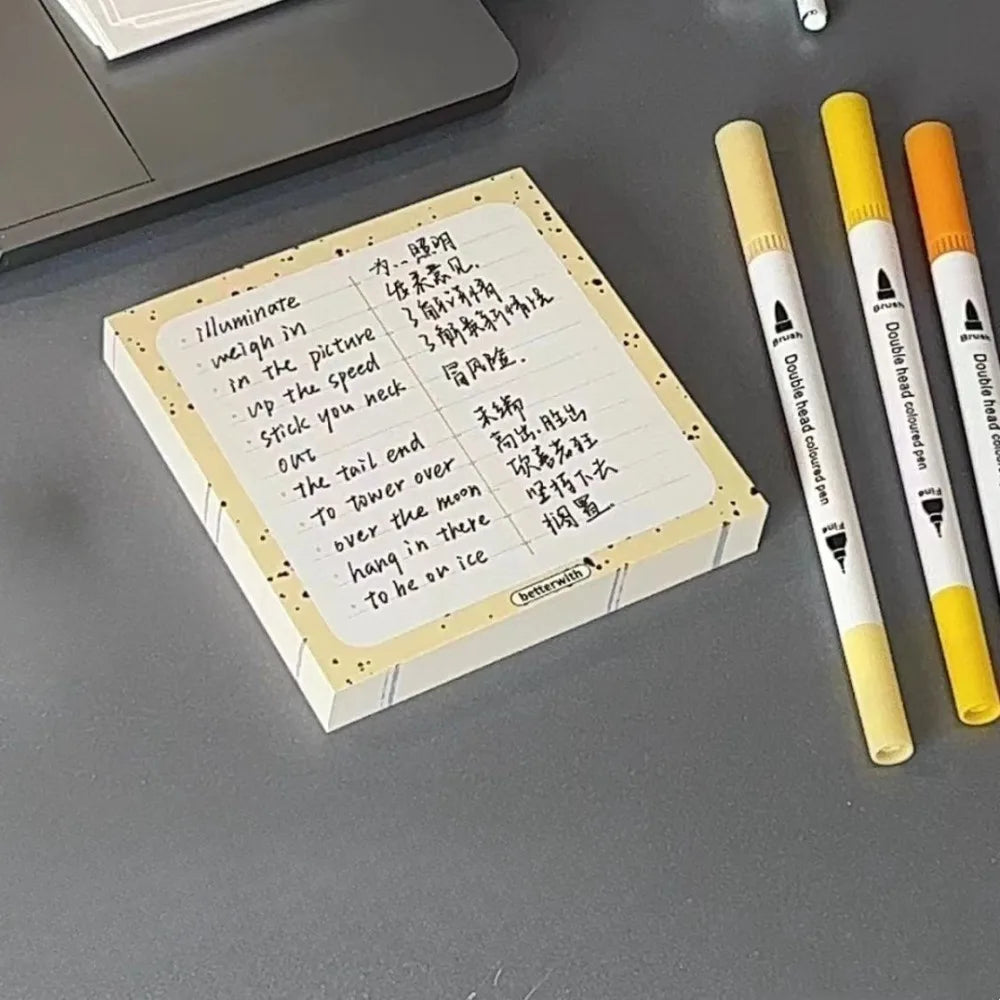 illuminate 为...照明
weigh in 发表意见.
in the picture 了解详情
up the speed 了解最新情况
stick you neck 冒风险.
out
the tail end 末端
to tower over 高出.胜出
over the moon 欣喜若狂
hang in there 坚持下去
to be on ice 搁置.
betterwith
Brush Double head coloured pen Fine
Brush Double head coloured pen Fine
Brush Double head coloured